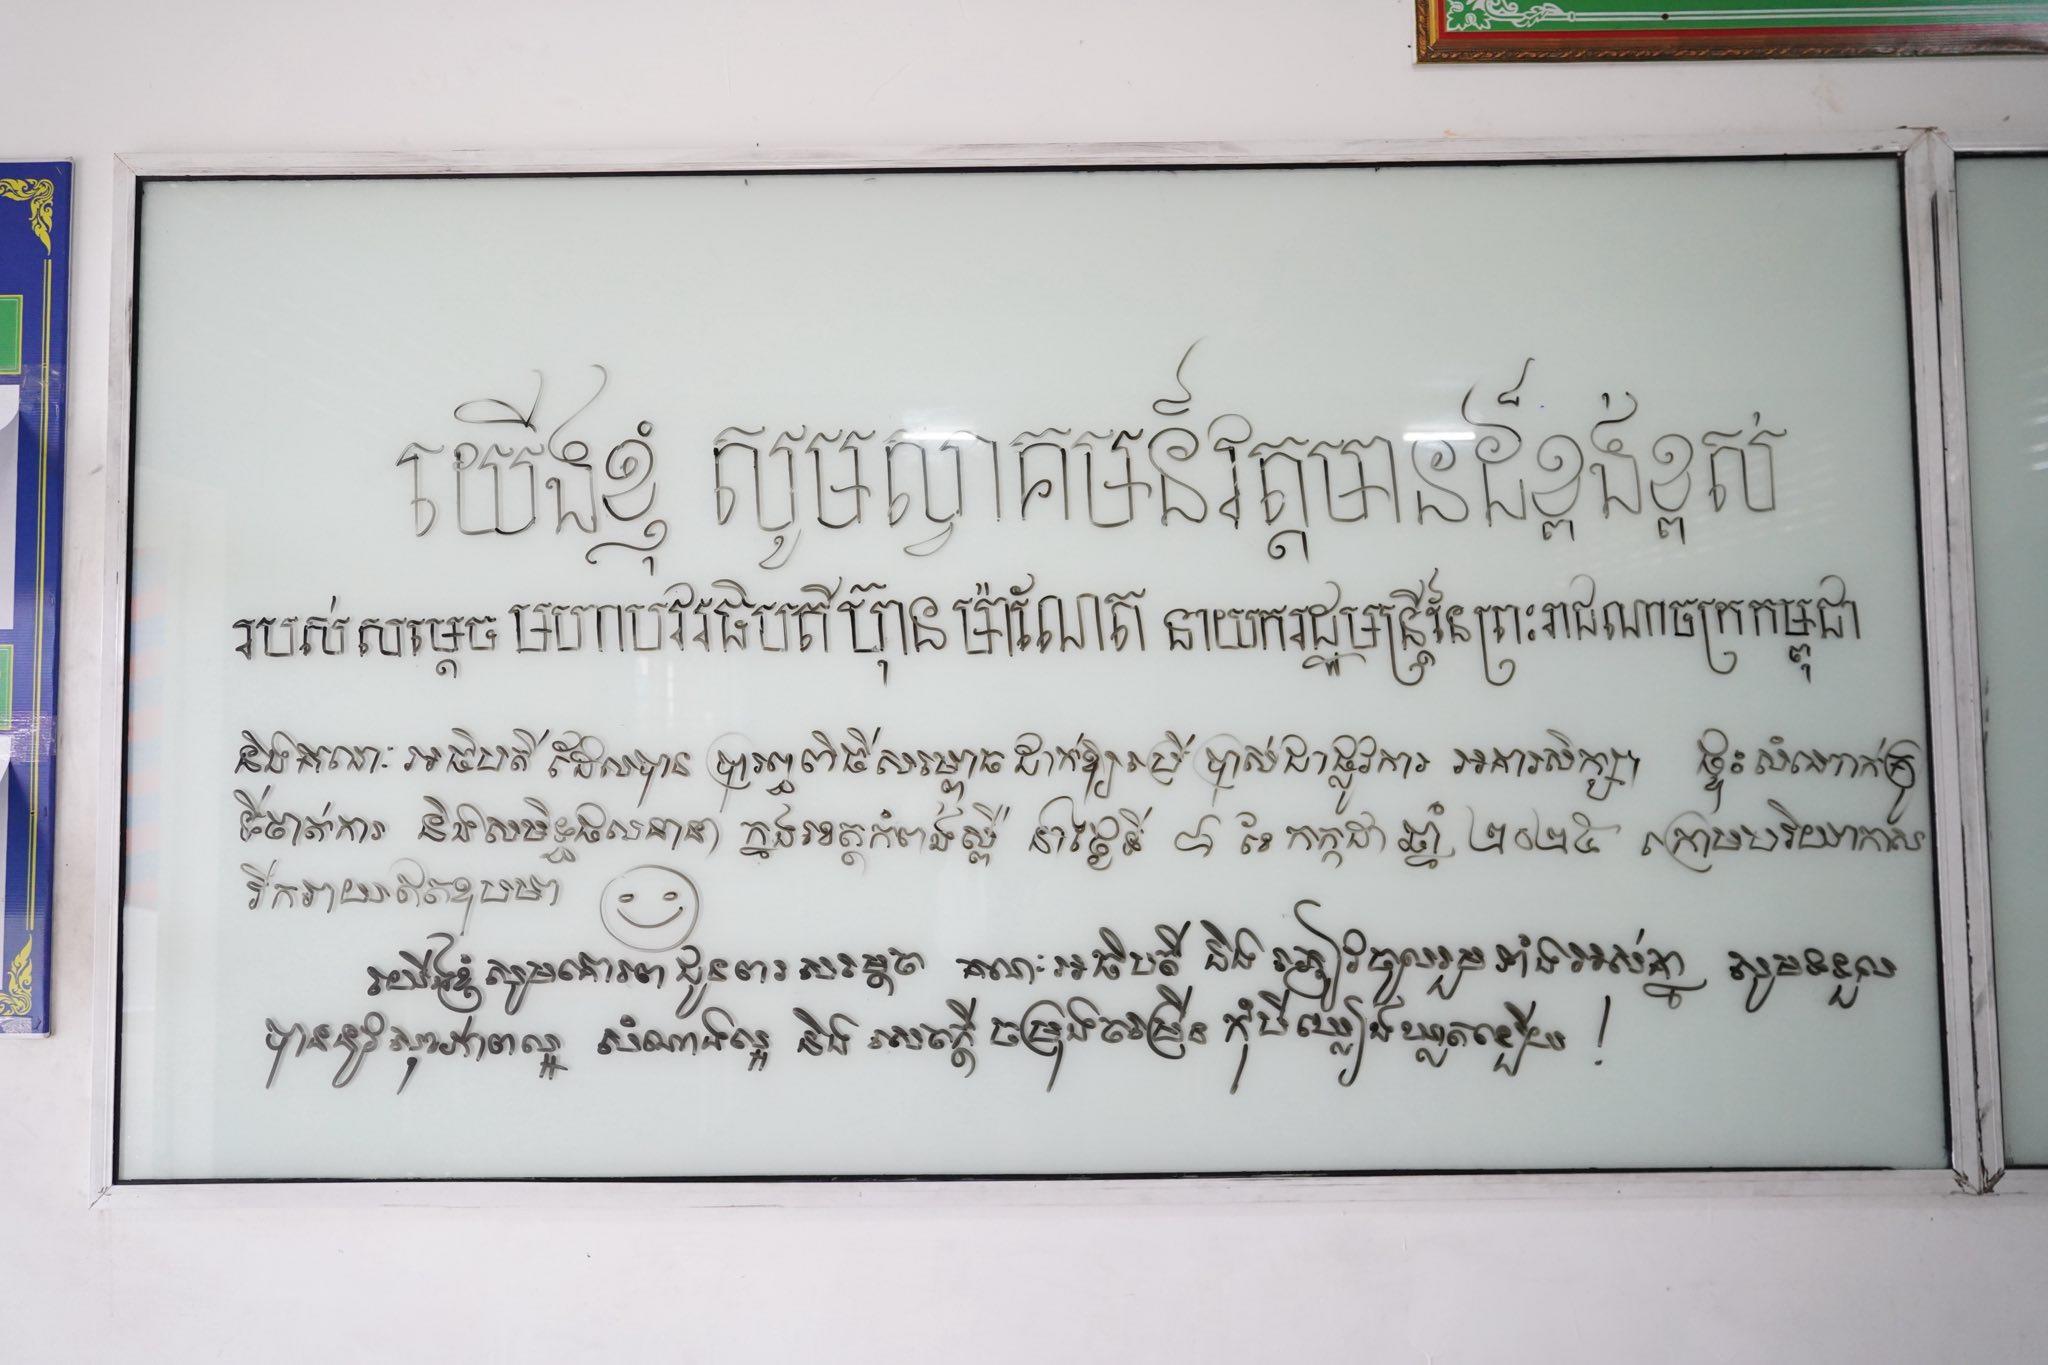 យើងខ្ញុំ សូមស្វាគមន៍វត្តមានដ៏ខ្ពង់ខ្ពស់
របស់សម្ដេច មហាបវរធិបតី ហ៊ុន ម៉ាណែត នាយករដ្ឋមន្រ្តីនៃព្រះរាជណាចក្រកម្ពុជា
និងគណៈអធិបតី ដែលបាន ប្រារព្ធពិធីសម្ពោធដាក់ឱ្យប្រើប្រាស់ជាផ្លូវការ អគារសិក្សា ផ្ទះសំណាក់គ្រូ
ទីចាត់ការ និងសមិទ្ធផលនានា ក្នុងខេត្តកំពង់ស្ពឺ នាថ្ងៃទី ៨ ខែ កក្កដា ឆ្នាំ ២០២៥ ក្រោមបរិយាកាស
រីករាយឥតឧបមា
យើងខ្ញុំសូមគោរពជូនពរ សម្ដេច គណៈអធិបតី និង ភ្ញៀវចូលរួមទាំងអស់គ្នា សូមទទួល
បាននូវ សុខភាពល្អ សំណាងល្អ និង សេចក្ដី ចម្រុងចម្រើន កុំបីឃ្លៀងឃ្លាតឡើយ !